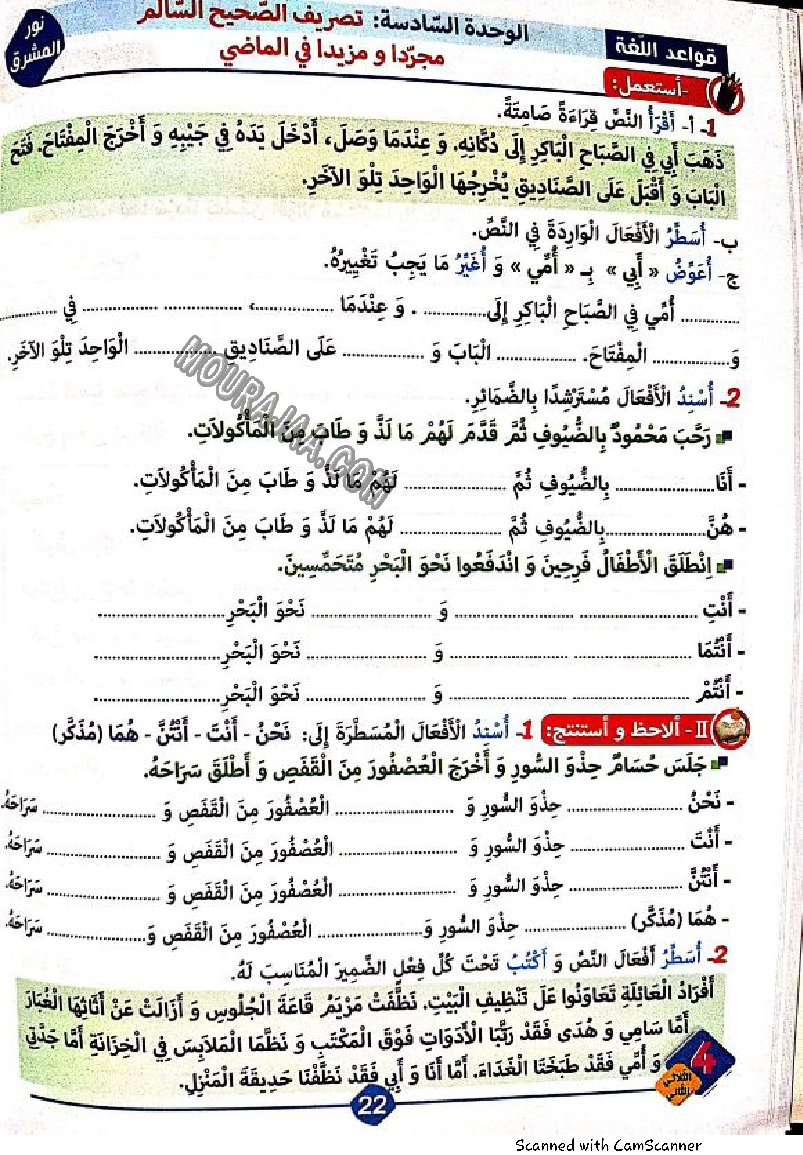 نور المشرق
قواعد اللّغة
الوحدة السّادسة: تصريف الصّحيح السّالم
مجرّدا و مزيدا في الماضي
-أستعمل:
1- أ- أَقْرَأُ النَّصَّ قِرَاءَةً صَامِتَةً.
ذَهَبَ أَبِي فِي الصَّبَاحِ الْبَاكِرِ إِلَى دُكَّانِهِ. وَ عِنْدَمَا وَصَلَ، أَدْخَلَ يَدَهُ فِي جَيْبِهِ وَ أَخْرَجَ الْمِفْتَاحَ. فَتَحَ
الْبَابَ وَ أَقْبَلَ عَلَى الصَّنَادِيقِ يُخْرِجُهَا الْوَاحِدَ تِلْوَ الآخَرِ.
ب- أُسَطِّرُ الْأَفْعَالَ الْوَارِدَةَ فِي النَّصِّ.
ج- أُعَوِّضُ « أَبِي » بِـ « أُمِّي » وَ أُغَيِّرُ مَا يَجِبُ تَغْيِيرُهُ.
............ أُمِّي فِي الصَّبَاحِ الْبَاكِرِ إِلَى............ . وَ عِنْدَمَا ............، ............ ............ فِي ............
وَ............ الْمِفْتَاحَ. ............ الْبَابَ وَ ............ عَلَى الصَّنَادِيقِ ............ الْوَاحِدَ تِلْوَ الآخَرِ.
MOURAJAA.COM
2- أُسْنِدُ الْأَفْعَالَ مُسْتَرْشِدًا بِالضَّمَائِرِ.
رَحَّبَ مَحْمُودٌ بِالضُّيُوفِ ثُمَّ قَدَّمَ لَهُمْ مَا لَذَّ وَ طَابَ مِنَ الْمَأْكُولَاتِ.
- أَنَا............ بِالضُّيُوفِ ثُمَّ ............ لَهُمْ مَا لَذَّ وَ طَابَ مِنَ الْمَأْكُولَاتِ.
- هُنَّ............بِالضُّيُوفِ ثُمَّ ............ لَهُمْ مَا لَذَّ وَ طَابَ مِنَ الْمَأْكُولَاتِ.
اِنْطَلَقَ الْأَطْفَالُ فَرِحِينَ وَ انْدَفَعُوا نَحْوَ الْبَحْرِ مُتَحَمِّسِينَ.
- أَنْتِ ............ ............ وَ ............ نَحْوَ الْبَحْرِ............
- أَنْتُمَا ............ ............ وَ ............ نَحْوَ الْبَحْرِ............
- أَنْتُمْ ............ ............ وَ ............ نَحْوَ الْبَحْرِ............
II- ألاحظ و أستنتج: 1- أُسْنِدُ الْأَفْعَالَ الْمُسَطَّرَةَ إِلَى: نَحْنُ - أَنْتَ - أَنْتُنَّ - هُمَا (مُذَكَّر)
جَلَسَ حُسَامٌ حِذْوَ السُّورِ وَ أَخْرَجَ الْعُصْفُورَ مِنَ الْقَفَصِ وَ أَطْلَقَ سَرَاحَهُ.
- نَحْنُ ............ حِذْوَ السُّورِ وَ ............ الْعُصْفُورَ مِنَ الْقَفَصِ وَ ............ سَرَاحَهُ.
- أَنْتَ ............ حِذْوَ السُّورِ وَ ............ الْعُصْفُورَ مِنَ الْقَفَصِ وَ ............ سَرَاحَهُ.
- أَنْتُنَّ ............ حِذْوَ السُّورِ وَ ............ الْعُصْفُورَ مِنَ الْقَفَصِ وَ ............ سَرَاحَهُ.
- هُمَا (مُذَكَّر) ............ حِذْوَ السُّورِ وَ............ الْعُصْفُورَ مِنَ الْقَفَصِ وَ............ سَرَاحَهُ.
2- أُسَطِّرُ أَفْعَالَ النَّصِّ وَ أَكْتُبُ تَحْتَ كُلِّ فِعْلٍ الضَّمِيرَ الْمُنَاسِبَ لَهُ.
أَفْرَادُ الْعَائِلَةِ تَعَاوَنُوا عَلَ تَنْظِيفِ الْبَيْتِ. نَظَّفَتْ مَرْيَمُ قَاعَةَ الْجُلُوسِ وَ أَزَالَتْ عَنْ أَثَاثِهَا الْغُبَارَ
أَمَّا سَامِي وَ هُدَى فَقَدْ رَتَّبَا الْأَدَوَاتِ فَوْقَ الْمَكْتَبِ وَ نَظَّمَا الْمَلَابِسَ فِي الْخِزَانَةِ أَمَّا جَدَّتِي
وَ أُمِّي فَقَدْ طَبَخَتَا الْغَدَاءَ. أَمَّا أَنَا وَ أَبِي فَقَدْ نَظَّفْنَا حَدِيقَةَ الْمَنْزِلِ.
4
الثلاثي الثاني
22
Scanned with CamScanner